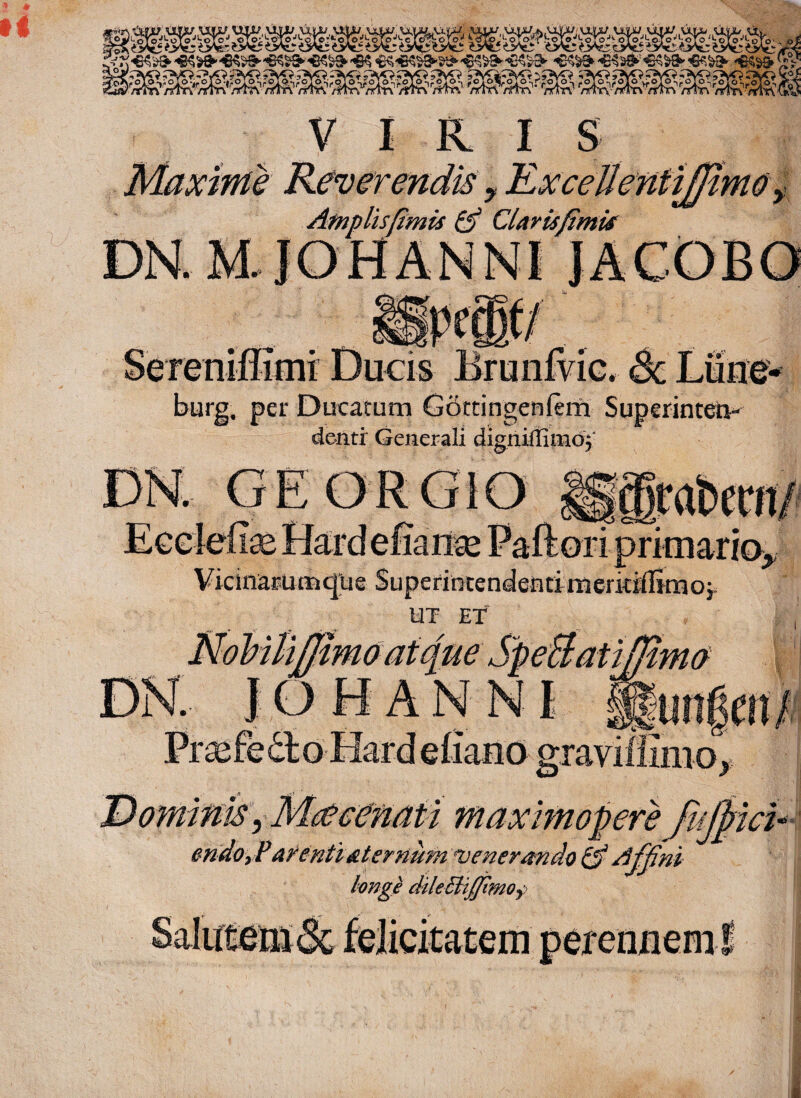 VIRIS
Maxime Reverendis, Excellentiſſimo,
Ampliſſimis & Clarisſimis
DN. M. JOHANNI JACOBO
Specht/
Sereniſſimi Ducis Brunſvic. & Lüne-
burg. per Ducatum Göttingenſem Superinten-
denti Generali digniſſimo;
DN. GEORGIO Schradern/
Eccleſiæ Hardeſianæ Paſtori primario,
Vicinarumque Superintendenti meritiſſimo;
UT ET
Nobiliſſimo atque Spectatiſſimo
DN. JOHANNI
Præfecto Hardeſiano graviſſimo,
Dominis, Mæcenati maximopere ſuſpici-
endo, Parenti æternùm venerando & Affini
longè dilectiſſimo,
Salutem & felicitatem perennem!